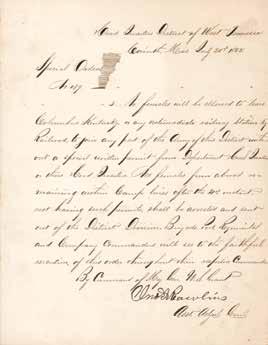 Head Quarters District of West Tennessee
Corinth, Miss July 20th 1862
Special Orders
No
No females will be allowed to leave
Columbus Kentucky or any intermediate railway station by
Railroad, to join any part of the Army of this District with
out a special written permit from Department Head Quarters
or these Head Quarters. No females from abroad re
maining within Camp lines after the
not having such permits shall be arrested and sent
out of the District. Division, Brigade, Post, Regimental
and Company Commanders will see to the faithful
execution of this order throughout their respective Commands
By Command of Maj Gen U.S. Grant
Jno A Rawlins
Asst Adjt Genl